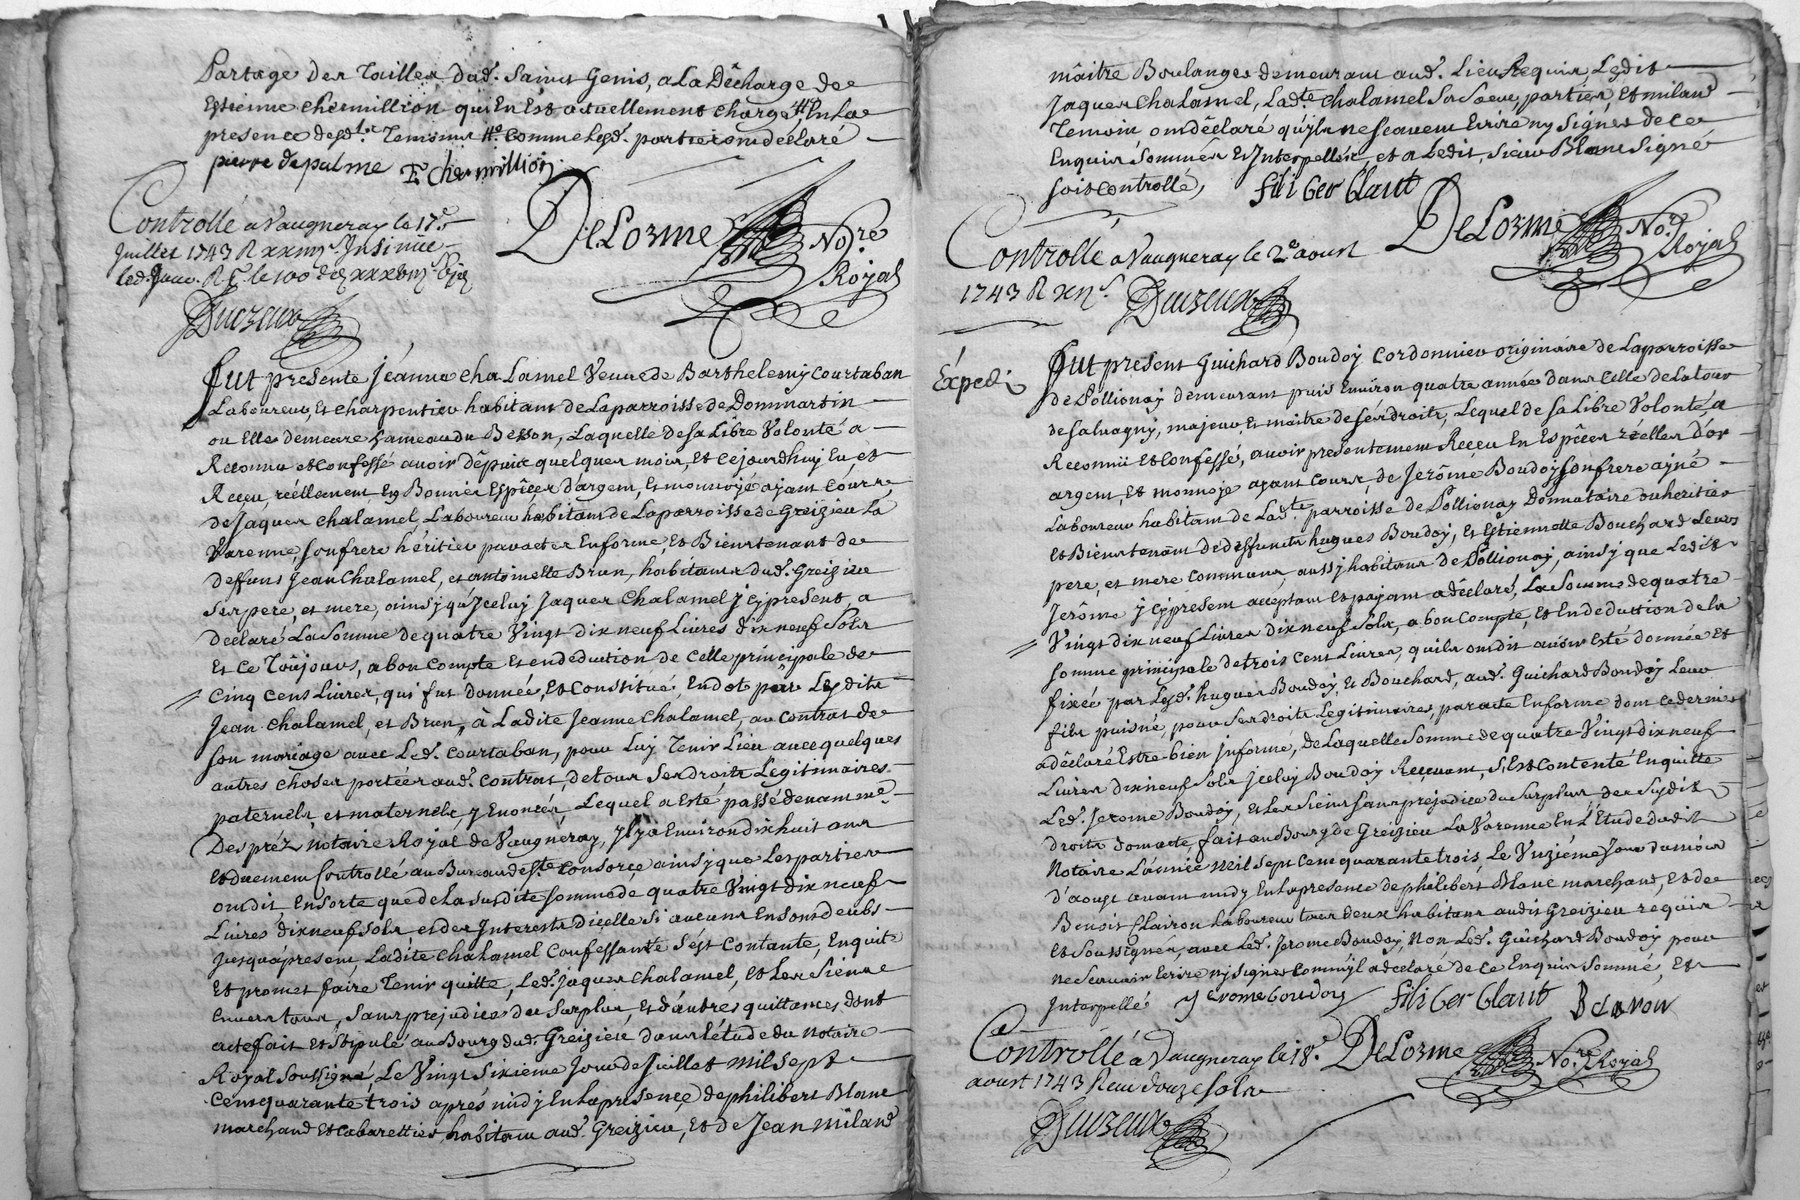 Partage des Tailles, dud. Saint Genis, a La Décharge de
Estienne chermillion qui En Est actuellement chargé, En La
presence desd. Temoins comme Lesd. parties ont declaré
pierre depalme E chermillion
DeLorme No.re Royal
Controllé a Vaugneray le 17e
Juillet 1743 R Insinüé
led. Jour.
Duzeux
fut presente Jeanne chaLamel Veuve de Barthelemy Courtaban
Laboureur, Et charpentier habitant de Laparroisse de Dommartin
ou Elle demeure hameau du Besson, Laquelle de sa Libre Volonté a
Reconnu et confessé avoir dêpuis quelques mois, et cejourdhuy Eu, et
Receu, réellement En Bonnes Espêces d'argent, et monnoyé ayant Cours,
de Jaques chalamel, Laboureur habitant de Laparroisse de Greizieu La
Varenne, son frere héritier par acte En forme, Et Bientenant de
deffunt Jean Chalamel, et antoinette Brun, habitants dud. Greizieu
ses pere, et mere, ainsy qu'Jceluy Jaques Chalamel Jcy present, a
declaré La Somme de quatre Vingt dix neuf Livres dix neuf Sols
Et ce Toûjours, a bon compte et en déduction de Celle principale de
Cinq cent Livres, qui fut donnée, Et Constitué En dot par Lesdits
Jean chalamel, et Brun, à Ladite Jeanne Chalamel, au contrat de
son mariage avec Led. Courtaban, pour Luy Tenir Lieu avec quelques
autres choses portées aud. contrat, de tous ses droits Legitimaires
paternels, et maternels, y Enoncés, Lequel a Esté passé devant me
Despréz notaire Royal de Vaugneray, Jl y a Environ dix huit ans
Et duement Controllé au Bureau de Ste Consorce ainsy que Les parties
ont dit Ensorte que de La susdite somme de quatre Vingt dix neuf
Livres dix neuf sols et des Interests d'icelle si aucuns En sont deubs
Jusqu'àpresent, Ladite chalamel Confessante s'est Contante, En quite
Et promet faire Tenir quitte, Led. Jaques chalamel, et Les Siens
Envers tous, Sans prejudice du Surplus, Et d'autres quittances dont
acte fait et Stipulé au Bourg dud. Greizieu dans l'étude du Notaire
Royal Soussigné, Le Vingt Sixieme Jour de Juillet mil sept
Cent quarante trois après midy En La presence de philibert Blanc
marchand et Cabarettier habitant aud. Greizieu, Et de Jean miland
mâitre Boulanger demeurant aud. Lieu Requis, Ledit
Jaques Chalamel, Lad.te chalamel sa Soeur, parties, et miland
Temoin ont déclaré qu'ils ne scavent Ecrire ny Signer de ce
Enquis Sommés Et Interpellés, et a Ledit, Sieur Blanc Signé
soit controllé, filiber blant
DeLorme No.re Royal
Controllé a Vaugneray le 2e aoust
1743 R
Duzeux
Expedié
fut present Guichard Boudoy Cordonnier originaire de Laparroisse
de Pollionay demeurant puis Environ quatre années dans Celle de La tour
de salvagny, majeur Et maitre de ses droits, Lequel de sa Libre Volonté, a
Reconnü Et Confessé, avoir presentement Receu En Espêces réelles d'or
argent, Et monnoye ayant Cours, de Jerôme Boudoy son frere ayné
Laboureur habitant de Lad.te parroisse de Pollionay Donnataire ou heritier
Et Bientenant de deffunts hugues Boudoy, Et Estiennette Bouchard Leurs
pere, et mere communs, aussy habitans de Pollionay, ainsy que Ledit
Jerôme Jcy present acceptant et payant a déclaré, La Somme de quatre
Vingt dix neuf Livres dix neuf Sols, a bon Compte, et En deduction de la
somme principale de trois Cent Livres, qu'ils ont dit avoir Esté donnée Et
fixée par Lesd. hugues Boudoy, Et Bouchard, aud. Guichard Boudoy Leur
fils puisné, pour ses droits Legitimaires, par acte En forme dont ce dernier
a déclaré Estre bien Jnformé, de Laquelle Somme de quatre Vingt dix neuf
Livres dix neuf Sols Jceluy Boudoy Recevant, S'Est contenté En quitte
Led. Jerome Boudoy, et Les Siens sans prejudice du Surplus de Susdits
droits dont acte, fait au Bourg de Greizieu La Varenne En L'Etude dudit
Notaire L'année mil sept Cent quarante trois, Le Unziéme Jour du mois
d'aoust avant midy En La presence de philibert Blanc marchand, et de
Benoit Clairon Laboureur tous deux habitans audit Greizieu requis
Et Soussignés, avec Led. Jerome Boudoy, Non Led. Guichard Boudoy pour
ne Scavoir Ecrire ny signer comm'jl a declaré de ce Enquis Sommé, Et
Interpellé Jerome boudoy filiber blant
DeLorme No.re Royal
Controllé a Vaugneray le 18e
aoust 1743 Reçu douze Sols
Duzeux